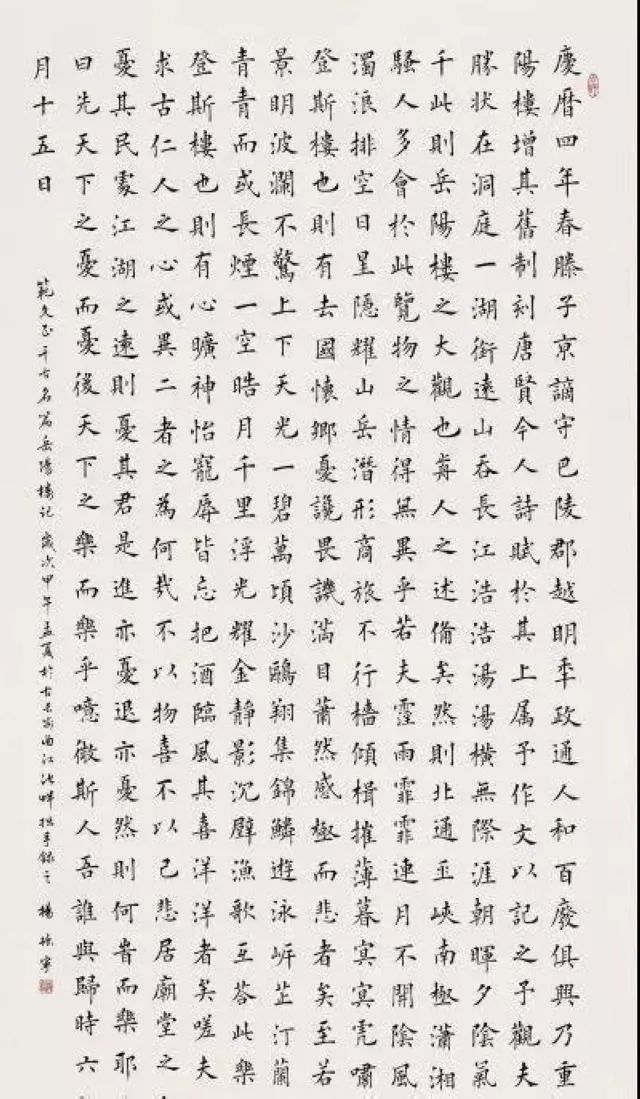 慶曆四年春滕子京謫守巴陵郡越明年政通人和百廢俱興乃重
陽樓增其舊制刻唐賢今人詩賦於其上属予作文以記之予觀夫
勝狀在洞庭一湖銜遠山吞長江浩浩湯湯橫無際涯朝暉夕陰氣
千此則岳陽樓之大觀也前人之述備矣然則北通巫峽南極瀟湘
騷人多會於此覽物之情得無異乎若夫霪雨霏霏連月不開陰風
濁浪排空日星隱耀山岳潛形商旅不行檣傾楫摧薄暮冥冥虎嘯
登斯樓也則有去國懷鄉憂讒畏譏滿目蕭然感極而悲者矣至若
景明波瀾不驚上下天光一碧萬頃沙鷗翔集錦鱗遊泳岸芷汀蘭
青青而或長煙一空皓月千里浮光耀金靜影沉璧漁歌互荅此樂
登斯樓也則有心曠神怡寵辱皆忘把酒臨風其喜洋洋者矣嗟夫
求古仁人之心或異二者之為何哉不以物喜不以己悲居廟堂之
憂其民處江湖之遠則憂其君是進亦憂退亦憂然則何旹而樂耶
曰先天下之憂而憂後天下之樂而樂乎噫微斯人吾誰與歸時六
月十五日
範文正千古名篇岳陽樓記歲次甲午孟夏於古長安曲江池畔拙手錄之楊